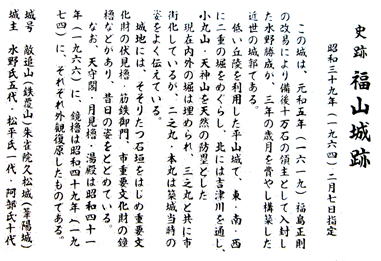 史跡 福山城跡
昭和三十九年(一九六四)二月七日指定
この城は、元和五年(一六一九)福島正則
の改易により備後十万石の領主として入封し
た水野勝成が、三年の歳月を費やし構築した
近世の城郭である。
低い丘陵を利用した平山城で、東・南・西
に二重の堀をめぐらし、北には吉津川を通し、
小丸山・天神山を天然の防塁とした
現在内外の堀は埋められ、三之丸と共に市
街化しているが、二之丸・本丸は築城当時の
姿をよく伝えている。
城地には、そそりたつ石垣をはじめ重要文
化財の伏見櫓・筋鉄御門、市重要文化財の鐘
櫓などがあり、昔日の姿をとどめている。
なお、天守閣・月見櫓・湯殿は昭和四十一
年(一九六六)に、鏡櫓は昭和四十九年(一九
七四)に、それぞれ外観復原したものである。
城号 敵追山(鉄覆山)朱雀院久松城(葦陽城)
城主 水野氏五代・松平氏一代・阿部氏十代